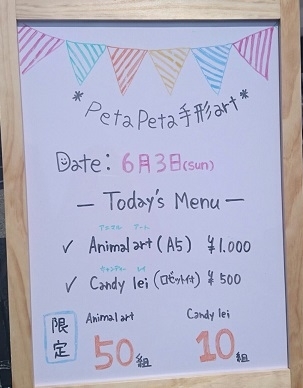 *PetaPeta手形art*
Date: 6月3日(sun)
— Today's Menu —
アニマル アート
✓ Animal art (A5) ¥1.000
キャンディー レイ
✓ Candy lei (ロゼット付) ¥500
限定
Animal art
50組
Candy lei
10組